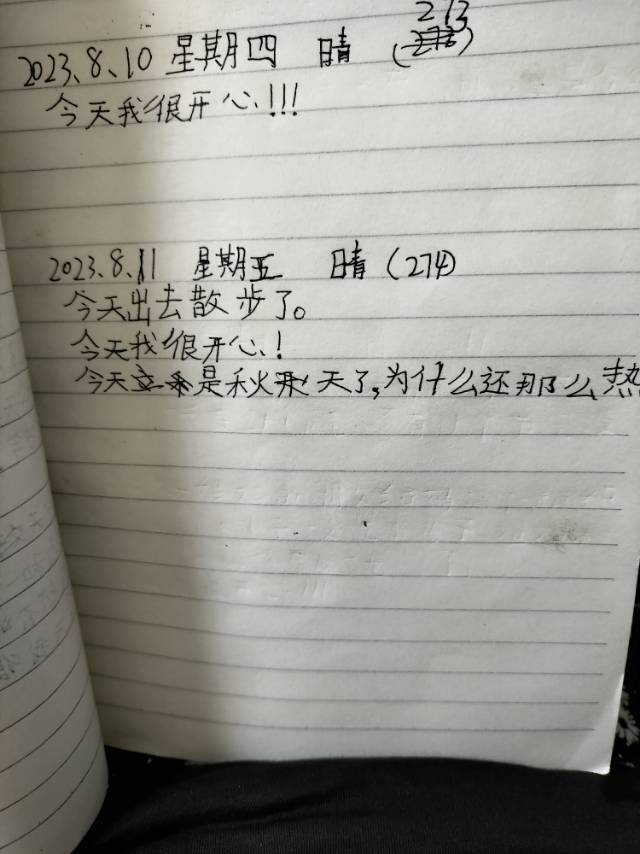 2023.8.10 星期四 晴 (273)
今天我很开心!!!
2023.8.11 星期五 晴 (274)
今天出去散步了。
今天我很开心!
今天是秋天了,为什么还那么热